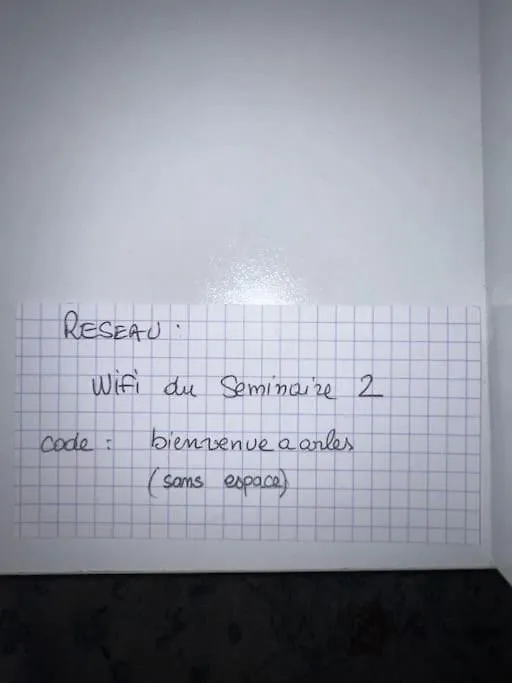 RESEAU :
Wifi du Seminaire 2
code : bienvenueaarles
(sans espace)